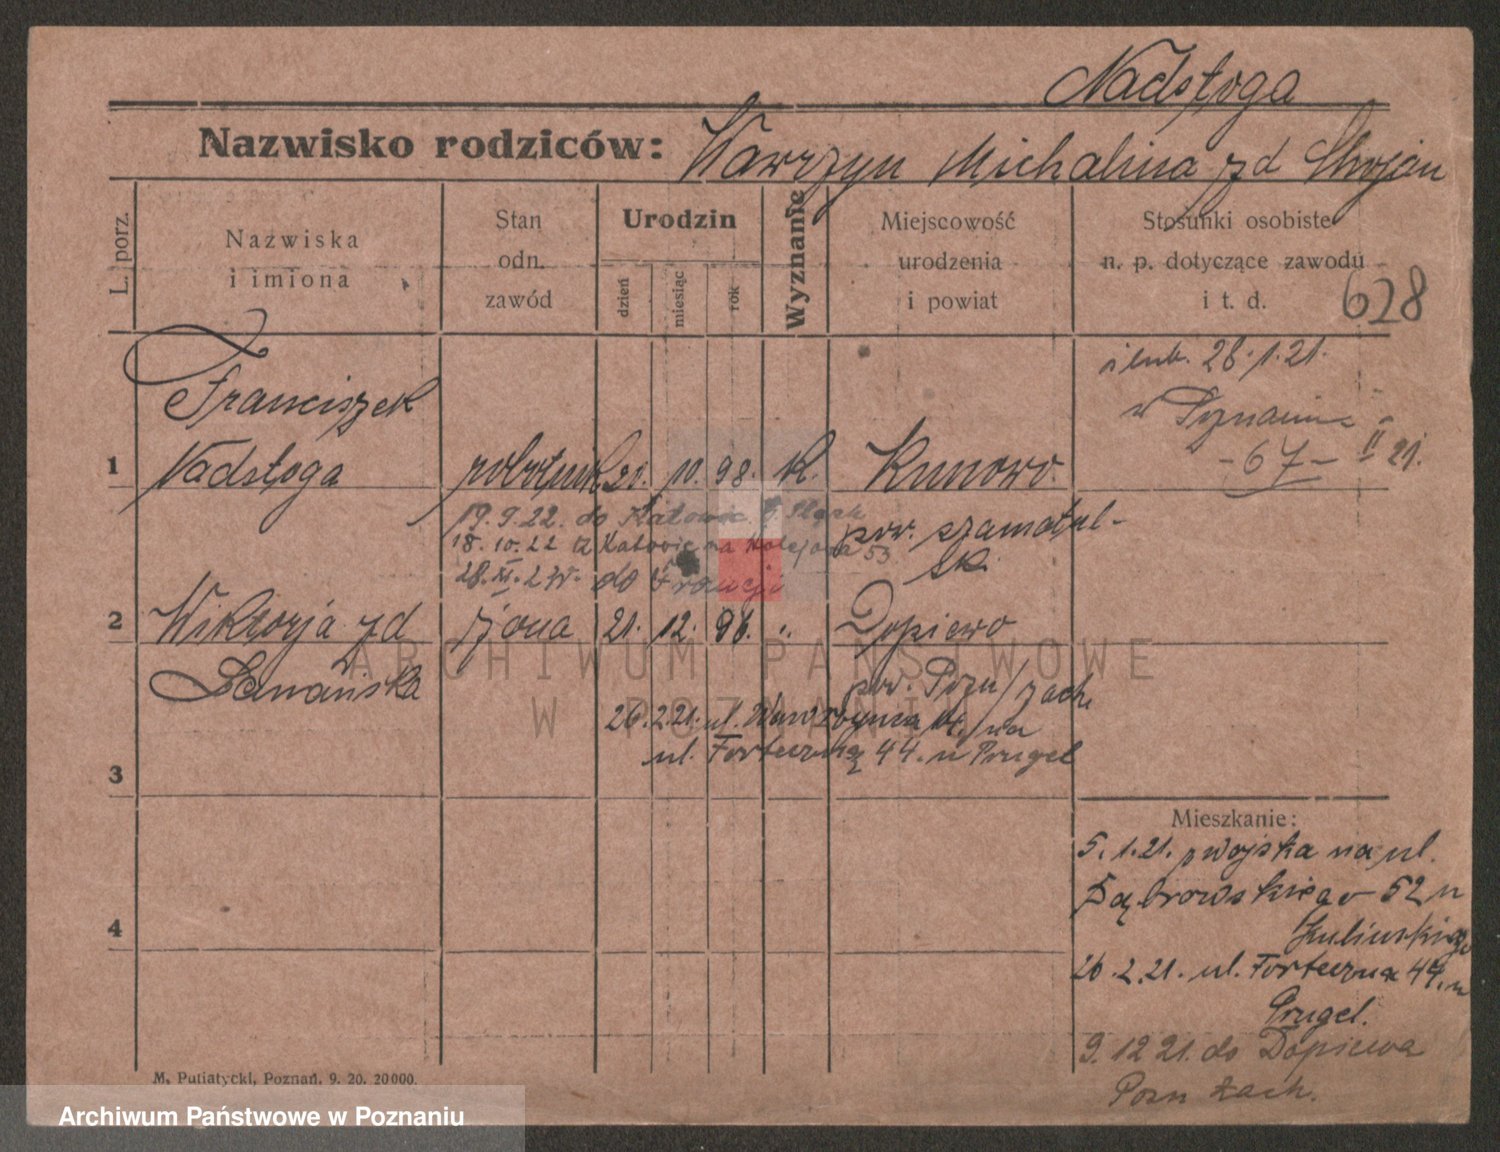 Nadstoga
Nazwisko rodziców: Wawrzyn Michalina zd Stroján
L. porz.
Nazwiska
i imiona
Stan
odn.
zawód
Urodzin
dzień
miesiąc
rok
Wyznanie
Miejscowość
urodzenia
i powiat
Stosunki osobiste
n. p. dotyczące zawodu
i t. d.
628
ślub. 28.1.21.
w Poznaniu
-67- II 21.
1
Franciszek
Nadstoga
robotnik 21. 10. 98. k.
Kunowo.
pow. szamotul-
sk.
19.9.22. do Katowic G Śląsk
18.10.22 z Katowic na Kolejową 53
28.XI.23r. do Francji
2
Wiktorja zd
żona 21. 12. 96. "
Dopiewo
pow. Pozn/zach.
26.2.21. ul. Wawrzyniaka 14. na
ul. Forteczną 44. u Prugel
3
4
Mieszkanie:
5.1.21. z wojska na ul.
Dąbrowskiego 52 u
26.2.21. ul. Forteczna 44. u
Prugel.
9.12 21. do Dopiewa
Pozn Zach.
M. Putiatycki, Poznań. 9. 20. 20000.
ARCHIWUM PAŃSTWOWE
W POZNANIU
Archiwum Państwowe w Poznaniu